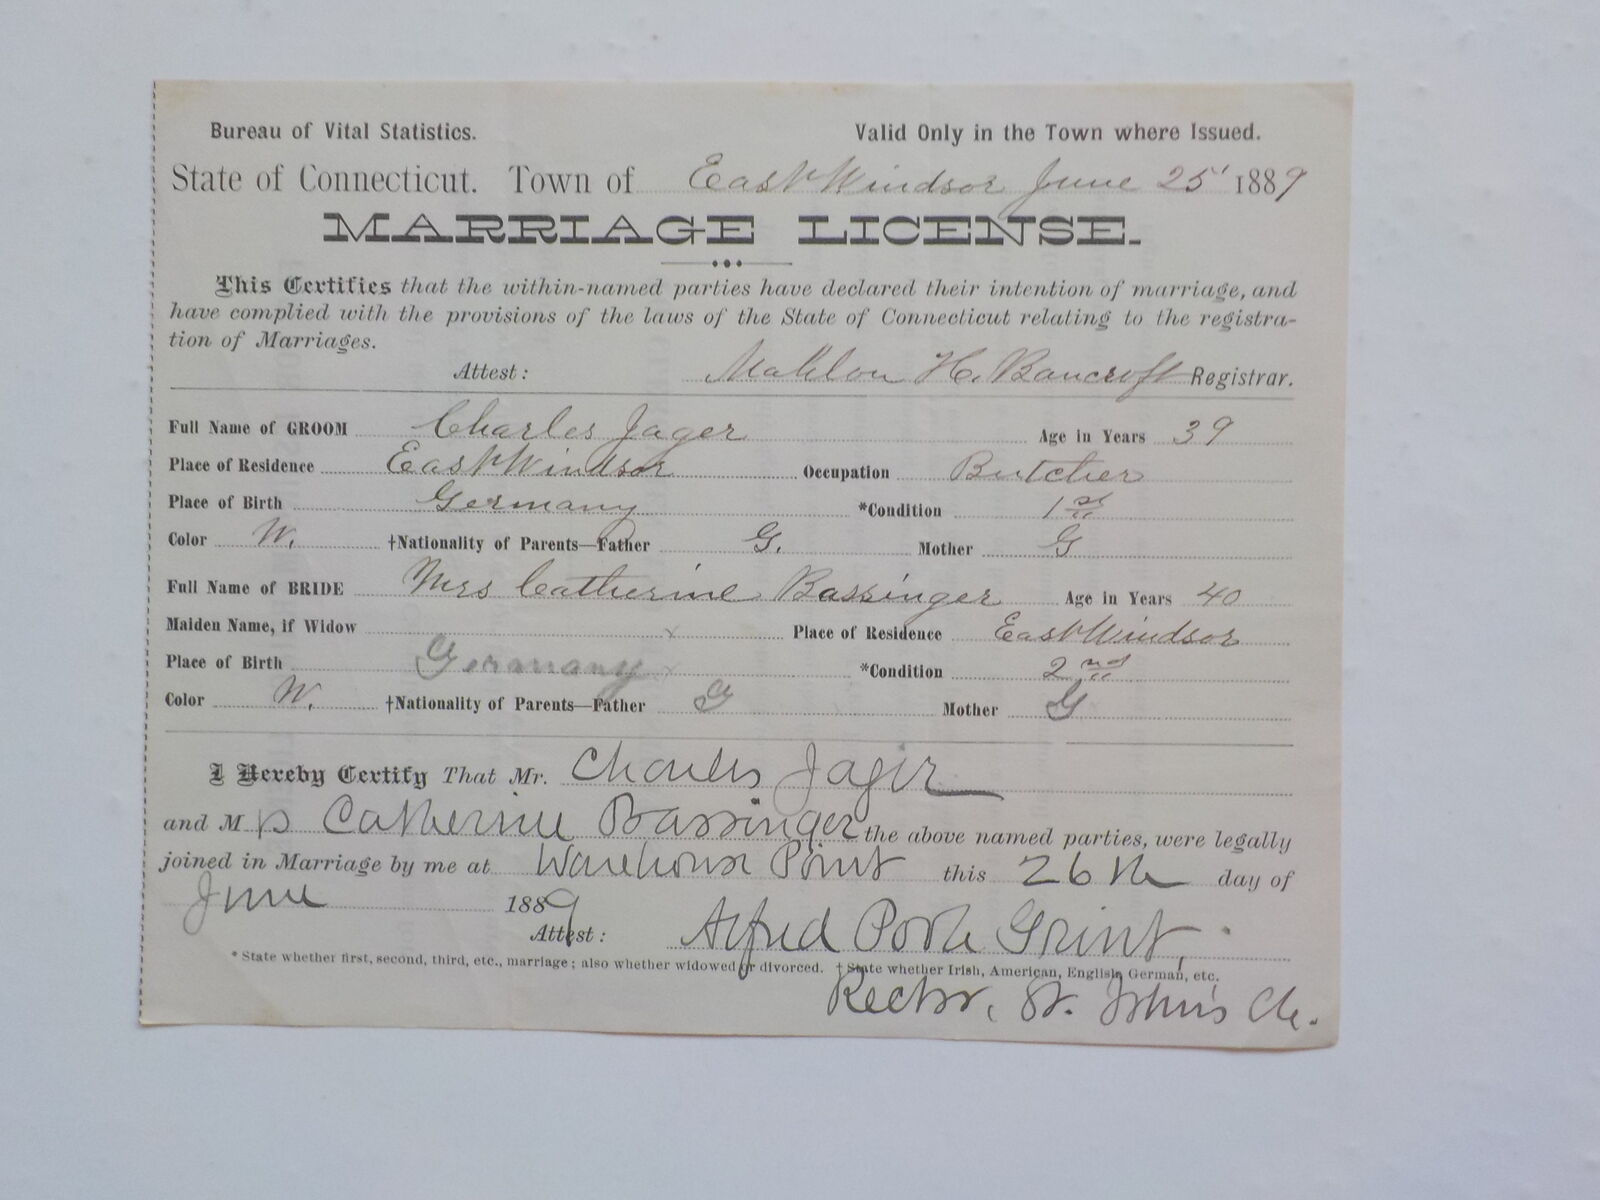 Bureau of Vital Statistics. Valid Only in the Town where Issued.
State of Connecticut. Town of East Windsor June 25' 1889
MARRIAGE LICENSE.
This Certifies that the within-named parties have declared their intention of marriage, and
have complied with the provisions of the laws of the State of Connecticut relating to the registra-
tion of Marriages.
Attest: Mahlon H. Bancroft Registrar.
Full Name of GROOM Charles Jager Age in Years 39
Place of Residence East Windsor Occupation Butcher
Place of Birth Germany *Condition 1st
Color W. †Nationality of Parents—Father G. Mother G
Full Name of BRIDE Mrs Catherine Bassinger Age in Years 40
Maiden Name, if Widow x Place of Residence East Windsor
Place of Birth Germany x *Condition 2nd
Color W. †Nationality of Parents—Father G Mother G
I Hereby Certify That Mr. Charles Jager
and M Catherine Bassinger the above named parties, were legally
joined in Marriage by me at Warehouse Point this 26th day of
June 1889
Attest: Alfred Poole Grint,
* State whether first, second, third, etc., marriage; also whether widowed or divorced. † State whether Irish, American, English, German, etc.
Rector, St. John's Ch.